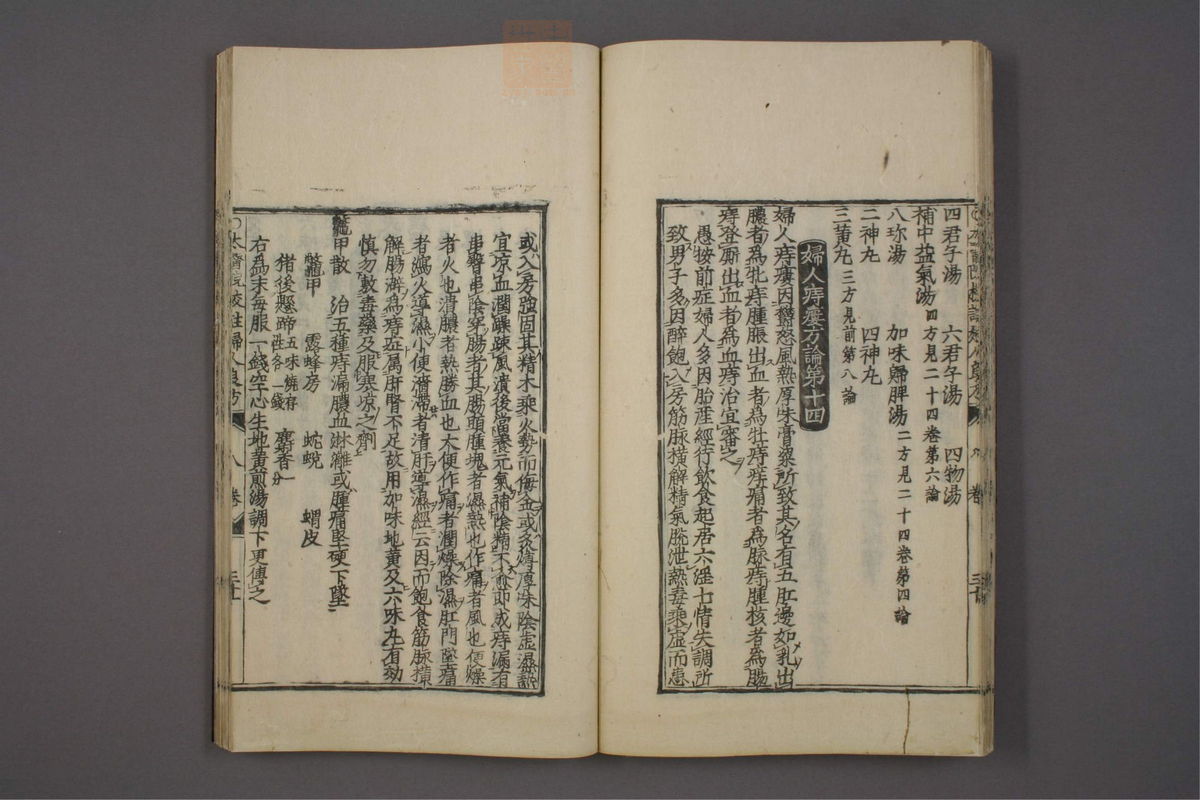 四君子湯 六君子湯 四物湯
補中益氣湯四方見二十四卷第六論
八珍湯 加味歸脾湯二方見二十四卷第四論
二神丸 四神丸
三黄丸三方見前第八論
婦人痔瘻方論第十四
婦人痔瘻因鬱怒風熱厚味膏粱所致其名有五肛邊如乳出
膿者爲牝痔腫脹出血者爲牡痔痔痛者爲脉痔腫核者爲腸
痔登厠出血者爲血痔治宜審之
愚按前症婦人多因胎產經行飲食起居六淫七情失調所
致男子多因醉飽入房筋脉橫解精氣脫泄熱毒乘虛而患
或入房强固其精木乘火勢而侮金或炙煿厚味陰虛濕熱
宜凉血潤燥疎風潰後當養元氣補陰精不愈即成痔漏有
串臀串陰穿腸者其腸頭腫塊者濕熱也作痛者風也便燥
者火也潰膿者熱勝血也大便作痛者潤燥除濕肛門墜痛
者瀉火導濕小便濇滯者清肝導濕經云因而飽食筋脉横
解腸澼爲痔症屬肝腎不足故用加味地黄及六味丸有効
慎勿敷毒藥及服寒凉之劑
鼈甲散 治五種痔漏膿血淋漓或腫痛堅硬下墜
鼈甲 露蜂房 蛇蛻 蝟皮
猪後懸蹄五味燒存性各一錢 麝香一分
右爲末每服一錢空心生地黄煎湯調下更傅之
太醫院校註婦人良方 八卷